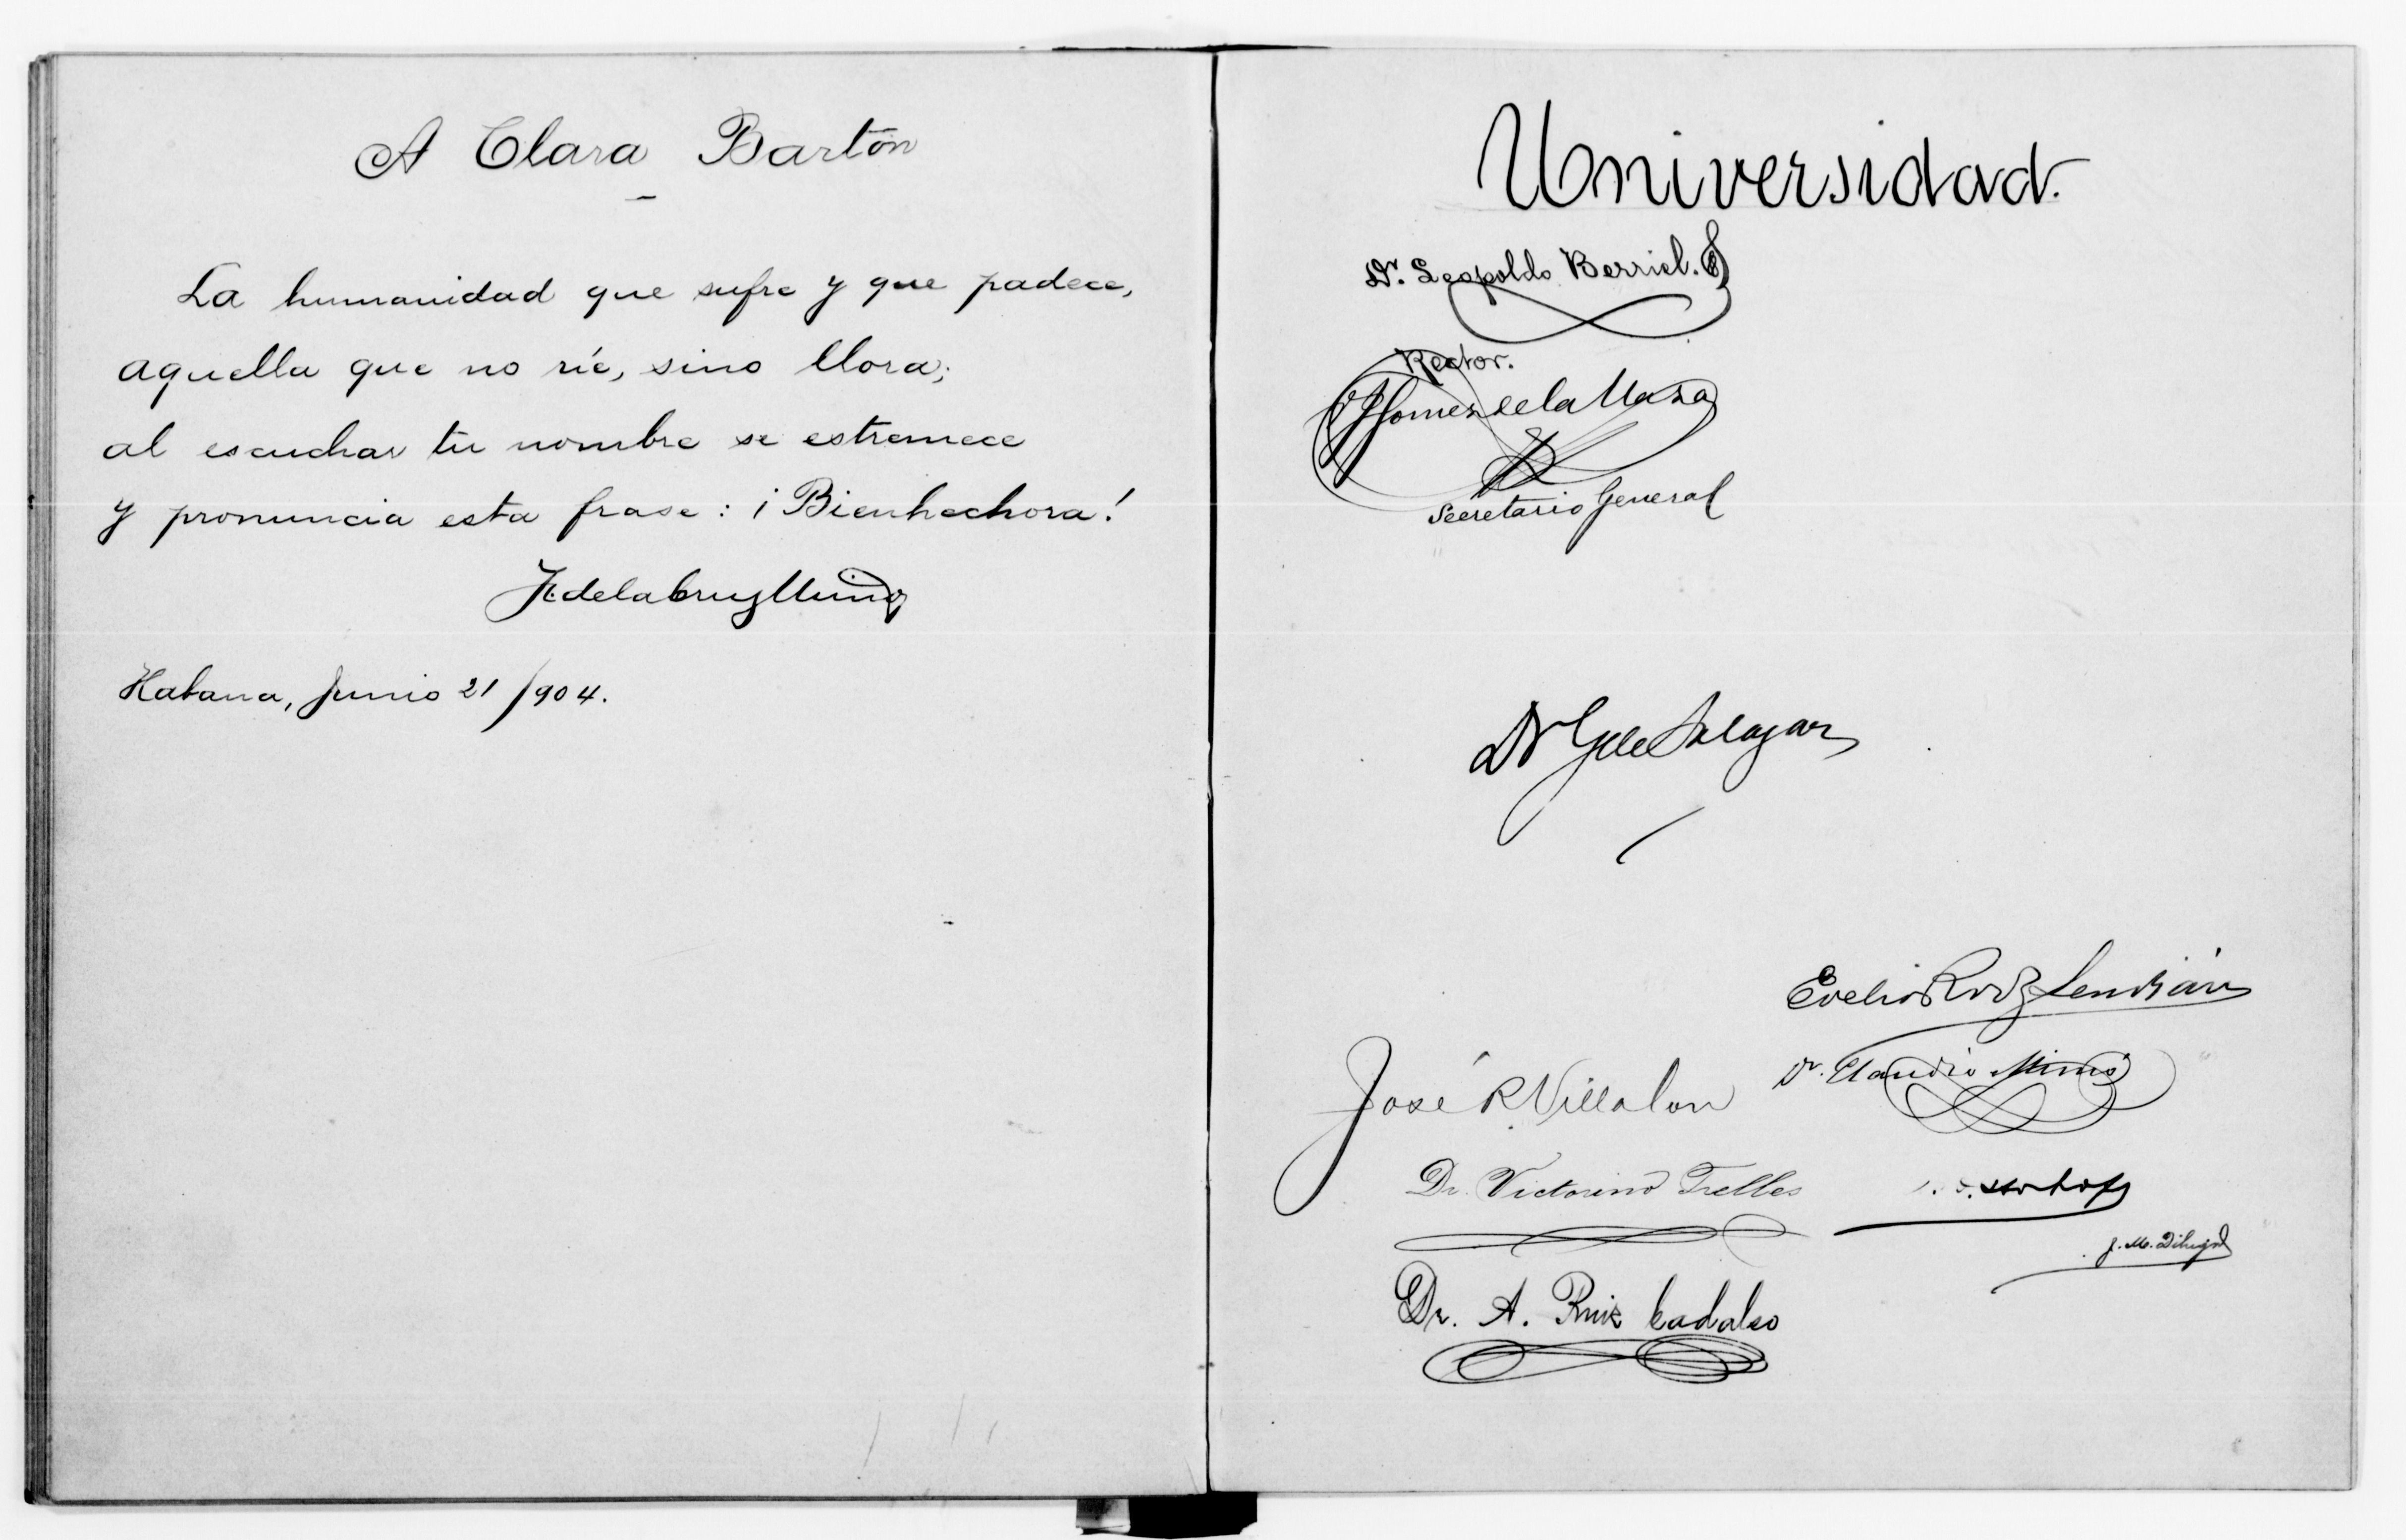 A Clara Barton
La humanidad que sufre y que padece,
aquella que no ríe, sino llora;
al escuchar tu nombre se estremece
y pronuncia esta frase: ¡Bienhechora!
de la Cruz
Habana, Junio 21/904.
Universidad.
Dr. Leopoldo Berriel.
Rector.
Gomez de la Maza
Secretario General
Dr G de Salazar
Evelio Rodz Lendián
Dr. Claudio Mimó
José R Villalon
Dr. Victorino Trelles
J. M. Dihigo
Dr. A. Ruiz Cadalso